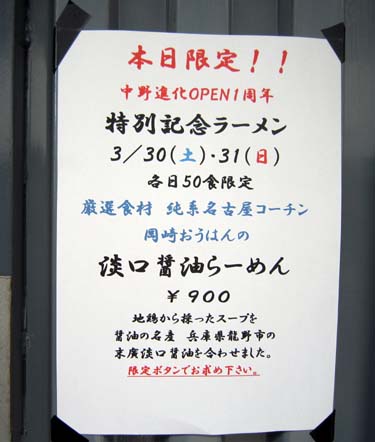 本日限定！！
中野進化OPEN1周年
特別記念ラーメン
3／30(土)・31(日)
各日50食限定
厳選食材 純系名古屋コーチン
岡崎おうはんの
淡口醤油らーめん
￥900
地鶏から採ったスープを
醤油の名産 兵庫県龍野市の
末廣淡口醤油を合わせました。
限定ボタンでお求め下さい。